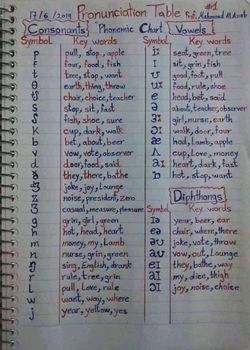 17/6/2019 Pronunciation Table #1
Prof. Mahmoud M
Consonants Phonemic Chart Vowels
Symbol Key words Symbol Key words
p pull, stop, apple i: seed, green, tree
f four, food, fish ɪ sit, grin, fish
t tree, stop, want ʊ good, foot, pull
θ earth, thing, throw u: food, rule, shoe
tʃ chair, choice, teacher e head, bet, said
s stop, sit, fast ə about, teacher, observer
ʃ fish, shoe, sure ɜ: girl, nurse, earth
k cup, dark, walk ɔ: walk, door, four
b bet, about, beer æ had, lamp, apple
v vow, vote, observer ʌ cup, Love, money
d door, food, said ɑ: heart, dark, fast
ð they, there, bathe ɒ hot, stop, want
dʒ joke, joy, Lounge Diphthongs
z noise, zero Symbol Key words
ʒ casual, measure, pleasure ɪə year, beer, ear
g grin, girl, green eə chair, where, there
h hot, head, heart əʊ joke, vote, throw
m money, my, Lamb aʊ vow, out, Lounge
n nurse, grin, green eɪ they, bathe, way
ŋ sing, English, drank aɪ my, dice, thigh
r rule, tree, grin ɔɪ joy, noise, choice
l pull, Love, rule
w want, way, where
j year, yellow, yes